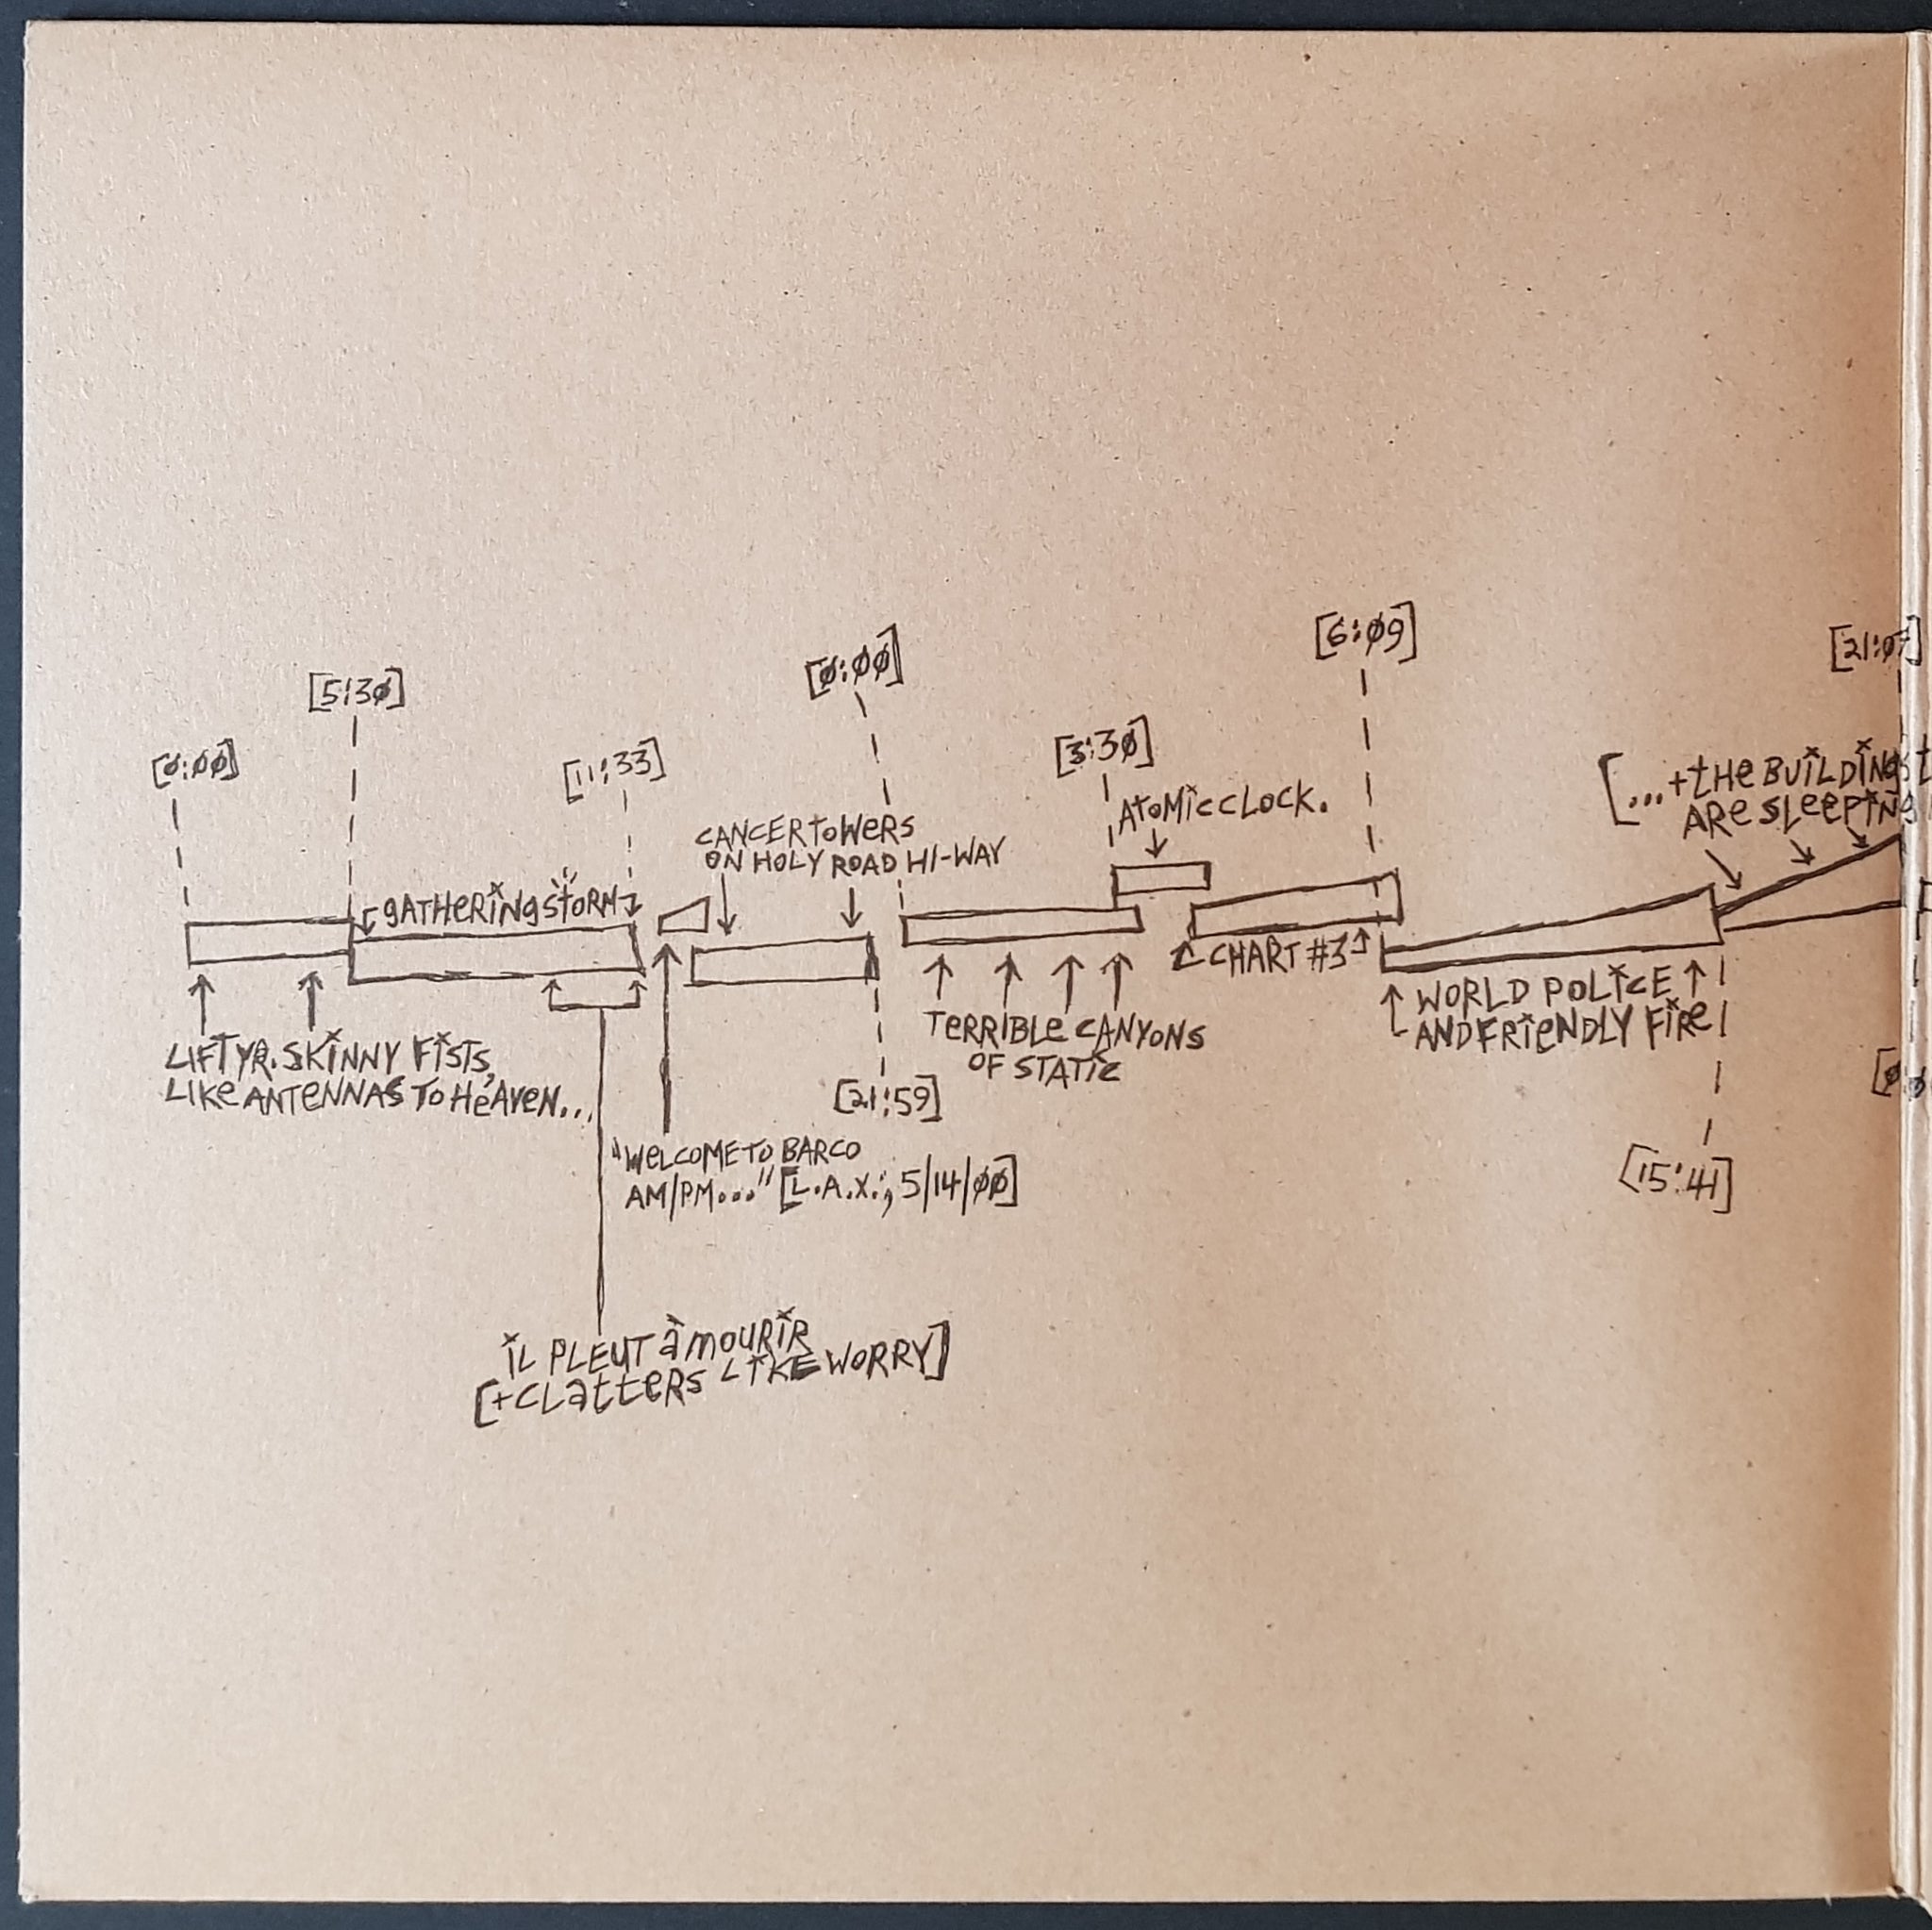 [0:00]
[5:30]
[11:33]
[0:00]
[3:30]
[6:09]
[21:07]
GATHERING STORM
CANCER TOWERS
ON HOLY ROAD HI-WAY
ATOMIC CLOCK.
[...+THE BUILDINGS
ARE SLEEPING
LIFT YR. SKINNY FISTS,
LIKE ANTENNAS TO HEAVEN...
TERRIBLE CANYONS
OF STATIC
CHART #3
WORLD POLICE
AND FRIENDLY FIRE
[21:59]
"WELCOME TO BARCO
AM/PM..." [L.A.X.; 5/14/00]
[15:41]
IL PLEUT À MOURIR
[+CLATTERS LIKE WORRY]